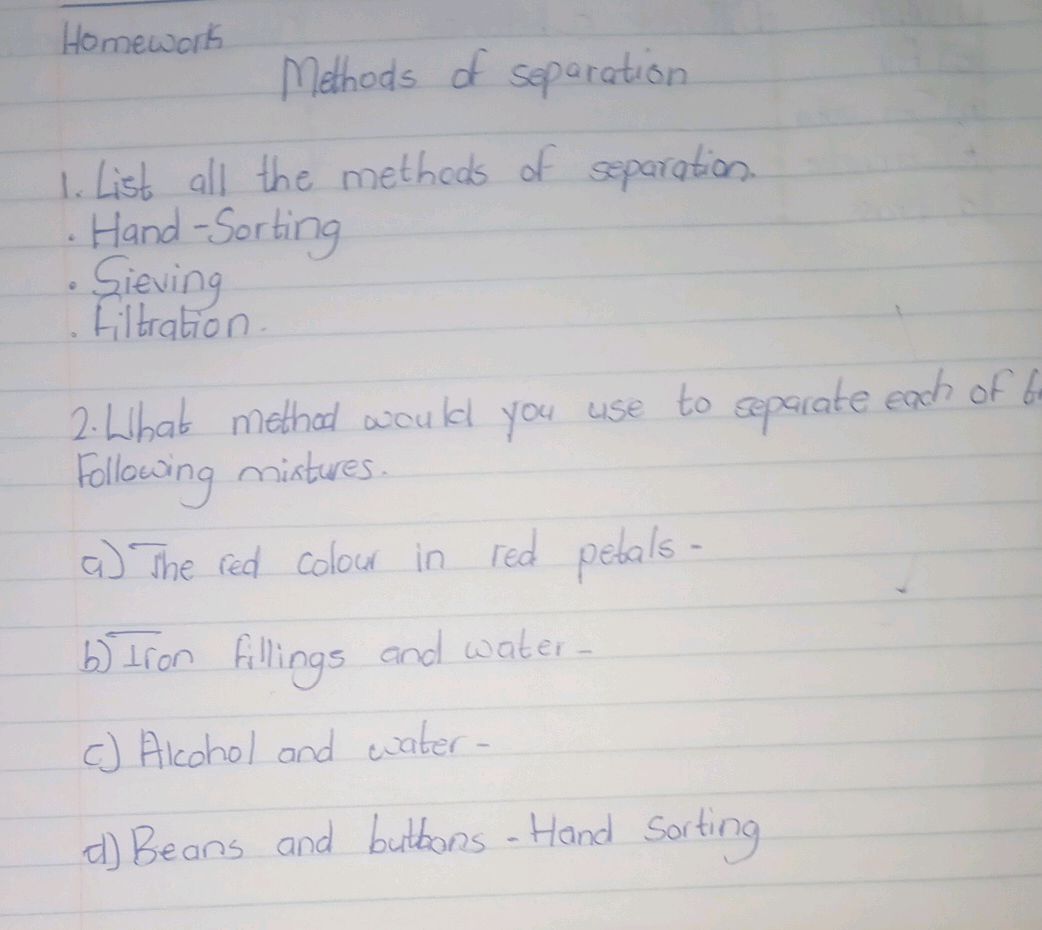 Homework
Methods of separation
1. List all the methods of separation.
. Hand-Sorting
. Sieving
. Filtration.
2. What method would you use to separate each of
Following mixtures.
a) The red colour in red petals -
b) Iron fillings and water -
c) Alcohol and water -
d) Beans and buttons - Hand Sorting